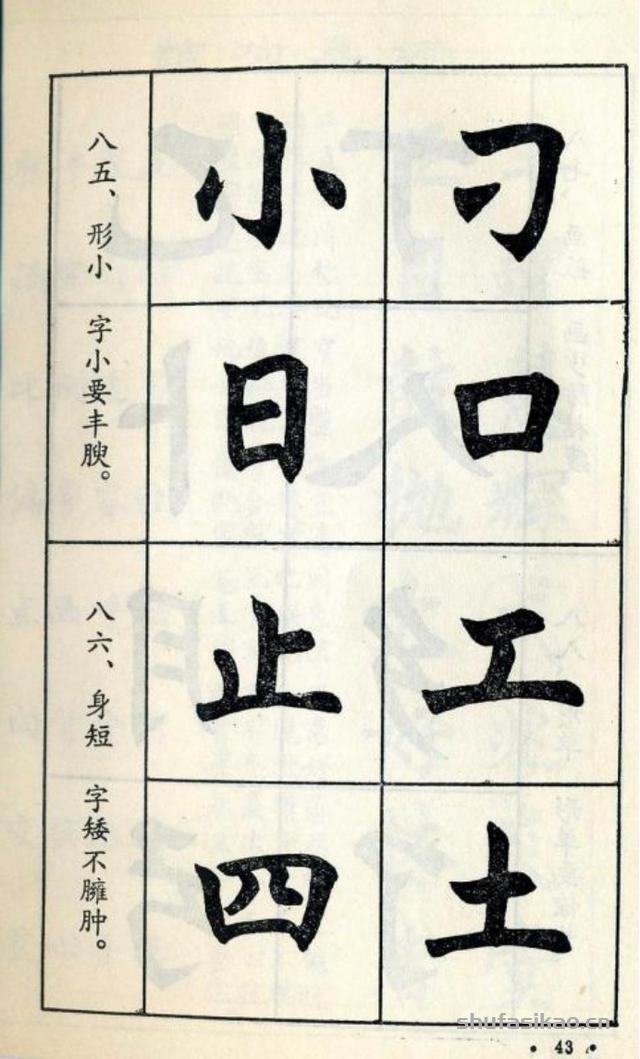 刁口
小日
八五、形小 字小要丰腴。
工土
止四
八六、身短 字矮不臃肿。
shufasikao.cn
• 43 •